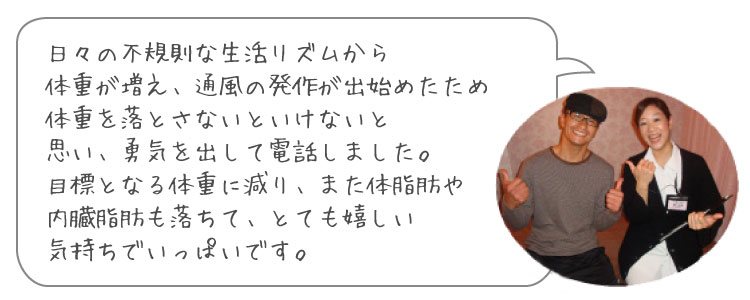 日々の不規則な生活リズムから
体重が増え、通風の発作が出始めたため
体重を落とさないといけないと
思い、勇気を出して電話しました。
目標となる体重に減り、また体脂肪や
内臓脂肪も落ちて、とても嬉しい
気持ちでいっぱいです。